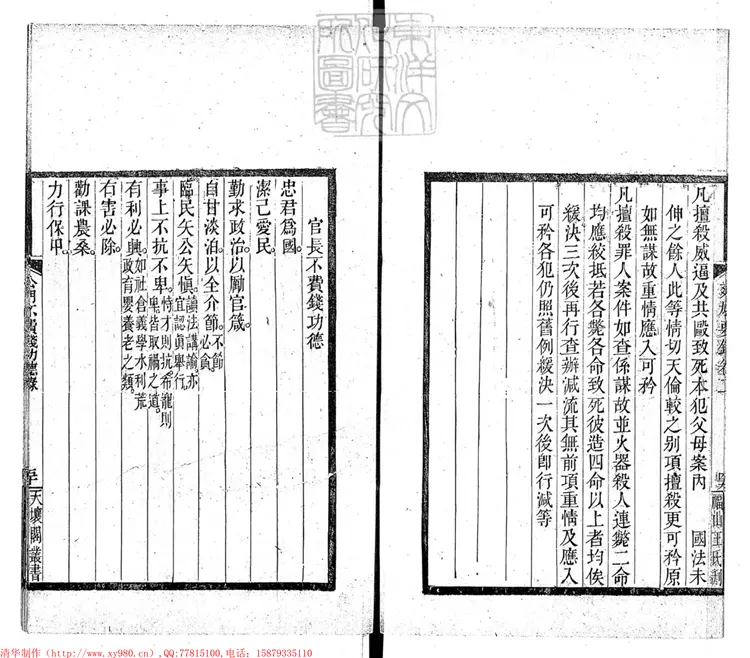 凡擅殺威逼及共毆致死本犯父母案內　國法未
伸之餘人此等情切天倫較之別項擅殺更可矜原
如無謀故重情應入可矜
凡擅殺罪人案件如查係謀故並火器殺人連斃二命
均應絞抵若各斃各命致死彼造四命以上者均俟
緩決三次後再行查辦減流其無前項重情及應入
可矜各犯仍照舊例緩決一次後卽行減等
福山王氏刻
東洋文化研究所圖書
官長不費錢功德
忠君爲國。
潔己愛民。
勤求政治。以勵官箴。
自甘淡泊。以全介節。不節必貪
臨民矢公矢愼。讀法講諭亦宜認眞舉行
事上不抗不卑。恃才則抗希寵則卑皆取禍之道。
有利必興。如社倉義學水利荒政育嬰養老之類。
有害必除。
勸課農桑。
力行保甲。
公門不費錢功德錄
天壤閣叢書
清华制作（http://www.xy980.cn）,QQ:77815100,电话：15879335110